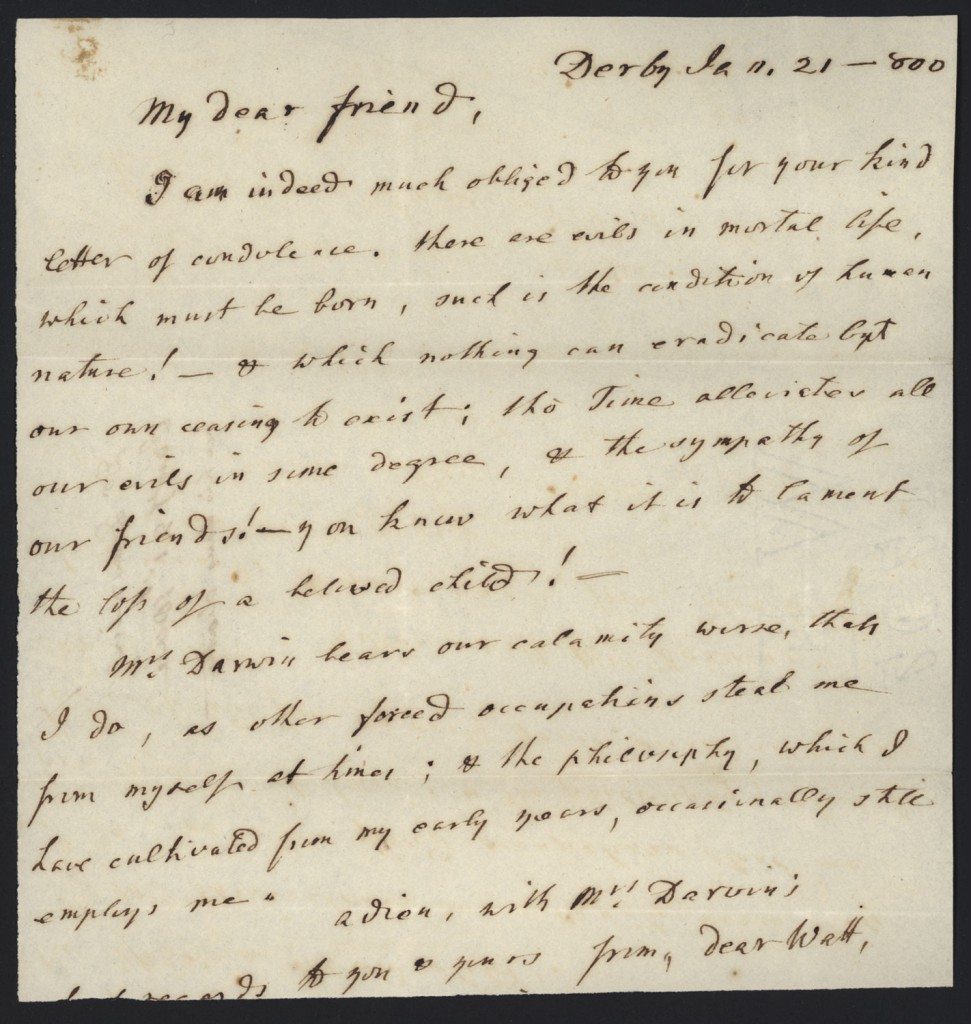 Derby Jan. 21 — 800
My dear friend,
I am indeed much obliged to you for your kind
letter of condolence. there are evils in mortal life,
which must be born, such is the condition of human
nature! — & which nothing can eradicate but
our own ceasing to exist; tho Time alleviates all
our evils in some degree, & the sympathy of
our friends! — you know what it is to lament
the loss of a beloved child! —
Mrs. Darwin bears our calamity worse, than
I do, as other forced occupations steal me
from myself at times; & the philosophy, which I
have cultivated from my early years, occasionally still
employs me.
adieu, with Mrs Darwin's
regards to you & yours from, dear Watt,